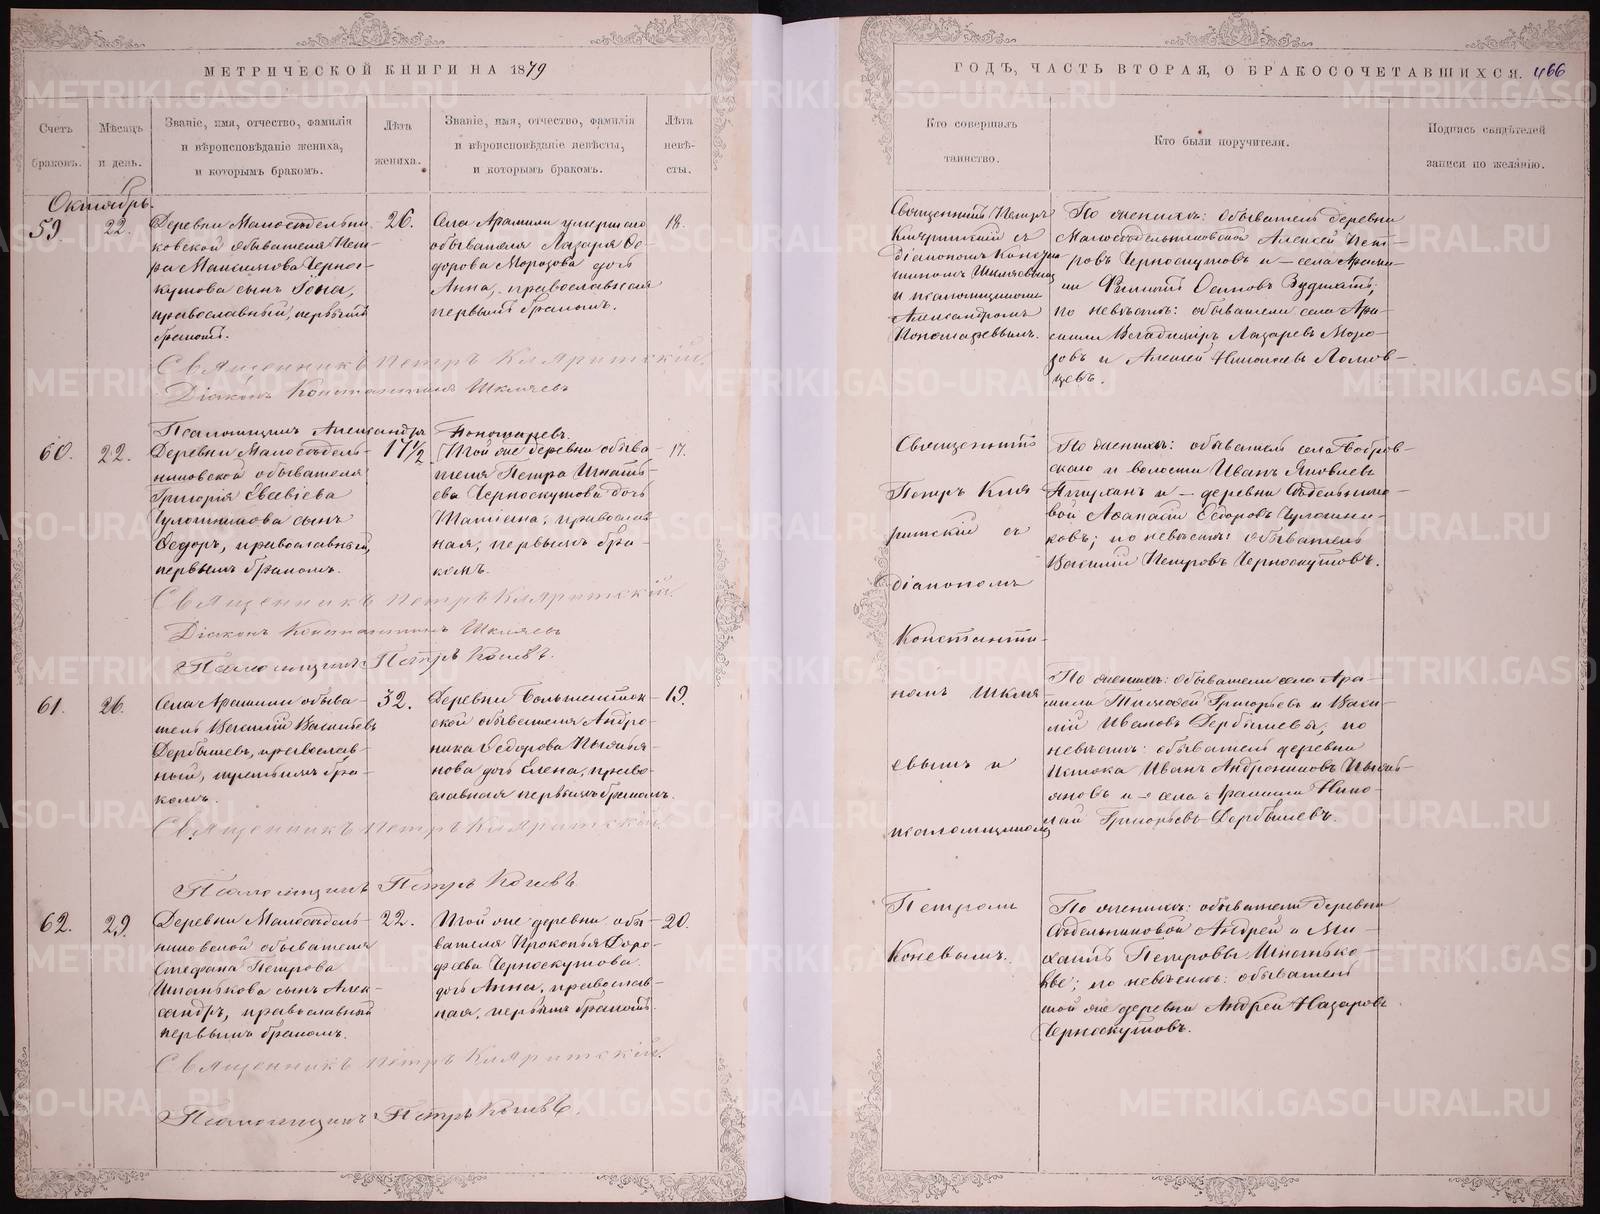 МЕТРИЧЕСКОЙ КНИГИ НА 1879
Счетъ браковъ.
Мѣсяцъ и день.
Званіе, имя, отчество, фамилія
и вѣроисповѣданіе жениха,
и которымъ бракомъ.
Лѣта жениха.
Званіе, имя, отчество, фамилія
и вѣроисповѣданіе невѣсты,
и которымъ бракомъ.
Лѣта невѣ-
сты.
Октябрь.
59.
22.
Деревни Малосѣдельни-
ковской обывателя Пет-
ра Максимова Чернос-
кутова сынъ Іона,
православный, первымъ
бракомъ.
26.
Села Арамили умершаго
обывателя Лазаря Ѳе-
дорова Морозова дочь
Анна, православная
первымъ бракомъ.
18.
Священникъ Петръ Кляритскій.
Діаконъ Константинъ Шкляевъ
Псаломщикъ Александръ Пономаревъ.
60.
22.
Деревни Малосѣдель-
никовской обывателя
Григорія Евсевіева
сынъ
Ѳедоръ, православный,
первымъ бракомъ.
17 1/2
Той же деревни обыва-
теля Петра Игнать-
ева Черноскутова дочь
Татіана, православ-
ная, первымъ бра-
комъ.
17.
Священникъ Петръ Кляритскій.
Діаконъ Константинъ Шкляевъ
Псаломщикъ Петръ Коневъ.
61.
26.
Села Арамили обыва-
тель Василій Васильевъ
Дербышевъ, православ-
ный, третьимъ бра-
комъ.
32.
Деревни
обывателя Андро-
ника Ѳедорова
дочь Елена, право-
славная первымъ бракомъ.
19.
Священникъ Петръ Кляритскій.
Псаломщикъ Петръ Коневъ
62.
29.
Деревни Малосѣдель-
никовской обывателя
Стефана Петрова
Шпанькова сынъ Алек-
сандръ, православный
первымъ бракомъ.
22.
Той же деревни обы-
вателя Прокопья Доро-
фѣева Черноскутова
дочь Анна, православ-
ная, первымъ бракомъ.
20.
Священникъ Петръ Кляритскій.
Псаломщикъ Петръ Коневъ.
ГОДЪ, ЧАСТЬ ВТОРАЯ, О БРАКОСОЧЕТАВШИХСЯ. 466
Кто совершалъ
таинство.
Кто были поручители.
Подпись свидѣтелей
записи по желанію.
Священникъ Петръ
Кляритскій съ
діакономъ Констан-
тиномъ Шкляевымъ
и псаломщикомъ
Александромъ
Пономаревымъ.
По женихѣ: обыватель деревни
Малосѣдельниковской Алексѣй Пет-
ровъ Черноскутовъ и - села Арами-
ли Филиппъ Осиповъ
по невѣстѣ: обыватели села Ара-
мили Владиміръ Лазаревъ Моро-
зовъ и Алексѣй Николаевъ Ломов-
цевъ.
Священникъ
Петръ Кля
ритскій съ
діакономъ
Константи-
номъ Шкля
евымъ и
псаломщикомъ
Петромъ
Коневымъ.
По женихѣ: обыватель села Бобров-
скаго и волости Иванъ Яковлевъ
и - деревни Сѣдельнико-
вой Аѳанасій Ѳедоровъ
ковъ; по невѣстѣ: обыватель
Василій Петровъ Черноскутовъ.
По женихѣ: обыватели села Ара-
мили Тимоѳей Григорьевъ и Васи-
лій Ивановъ Дербышевы, по
невѣстѣ: обыватель деревни
Истока Иванъ Андрониковъ
и - села Арамили Нико-
лай Григорьевъ Дербышевъ.
По женихѣ: обыватели деревни
Сѣдельниковой Андрей и Ми-
хаилъ Петровы Шпанько-
вы; по невѣстѣ: обыватель
той же деревни Андрей Назаровъ
Черноскутовъ.
METRIKI.GASO-URAL.RU